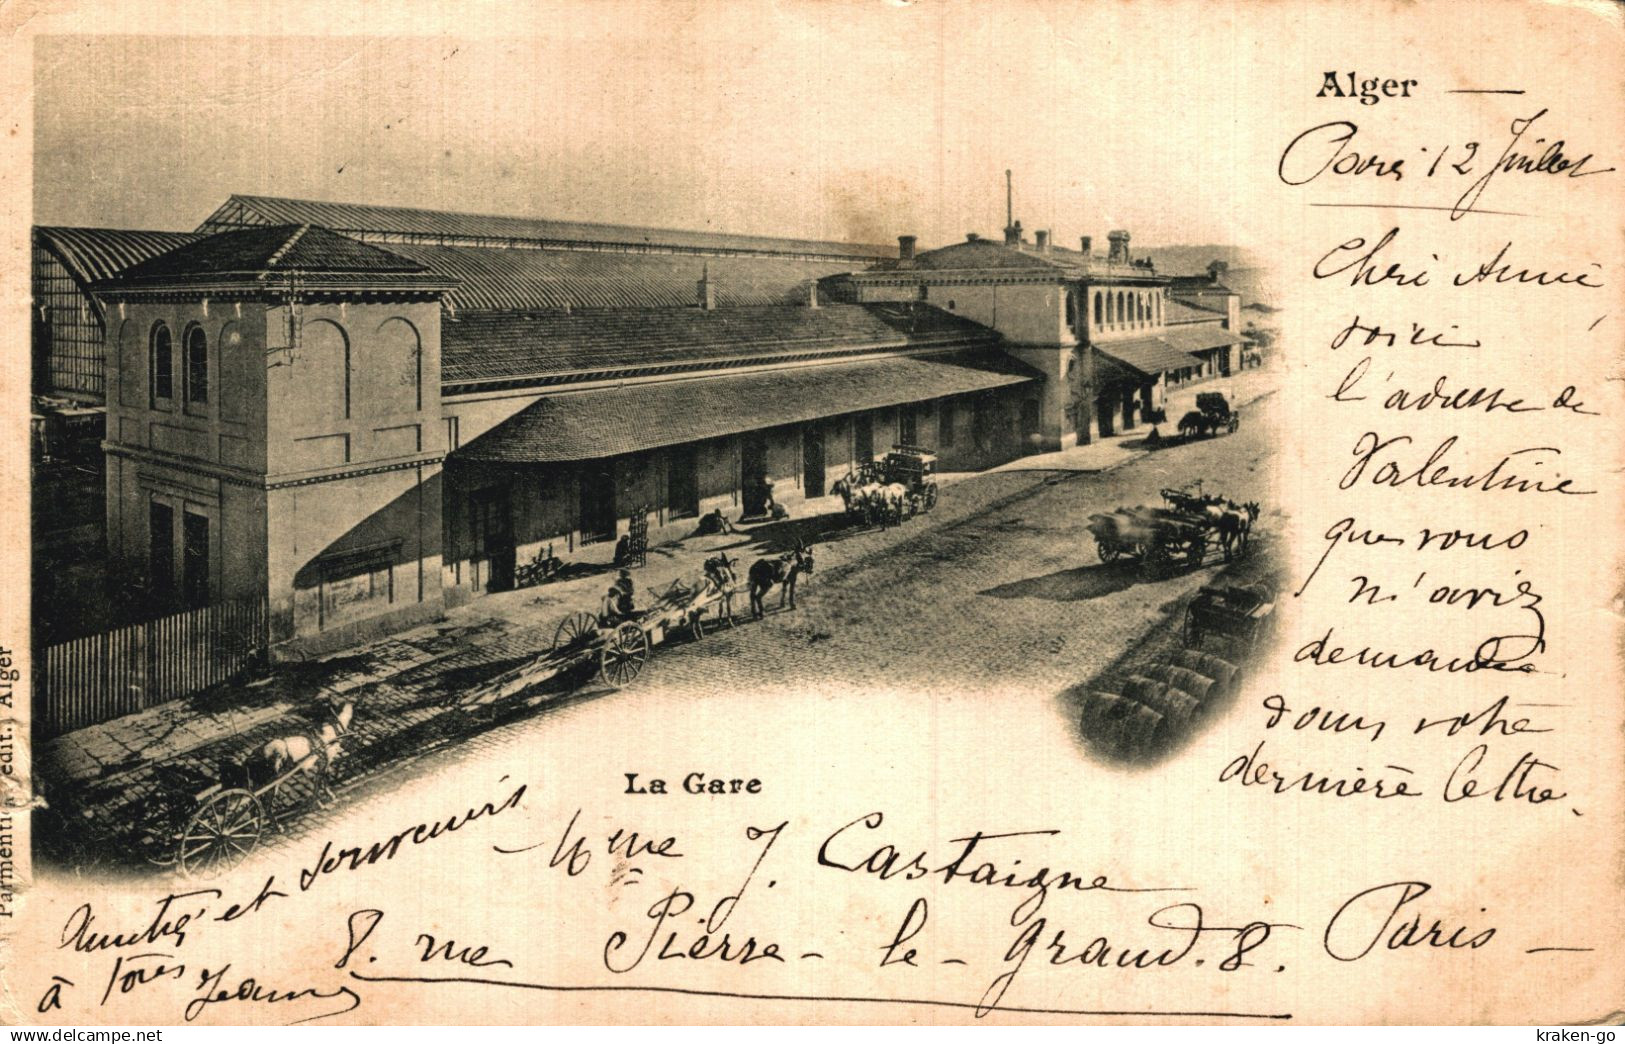 Alger
Paris 12 Juillet
Chri Amie
voici
l'adresse de
Valentine
que vous
n'aviez
demandé
dans votre
dernière lettre.
La Gare
Mme J. Castaigne
8. rue Pierre-le-Grand. 8. Paris
Amitiés et souvenirs
à tous Jeanne
Parmentier, édit., Alger
kraken-go